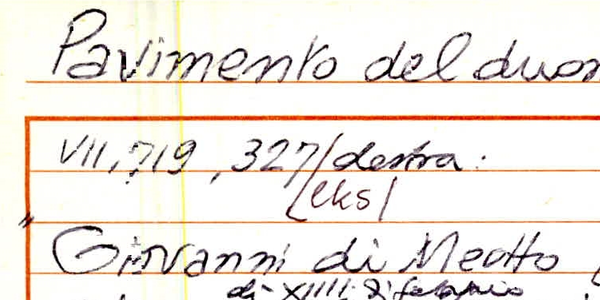 Pavimento del duo
VII, 719, 327/destra:
[eks]
" Giovanni di Meotto
di XIIII di febraio